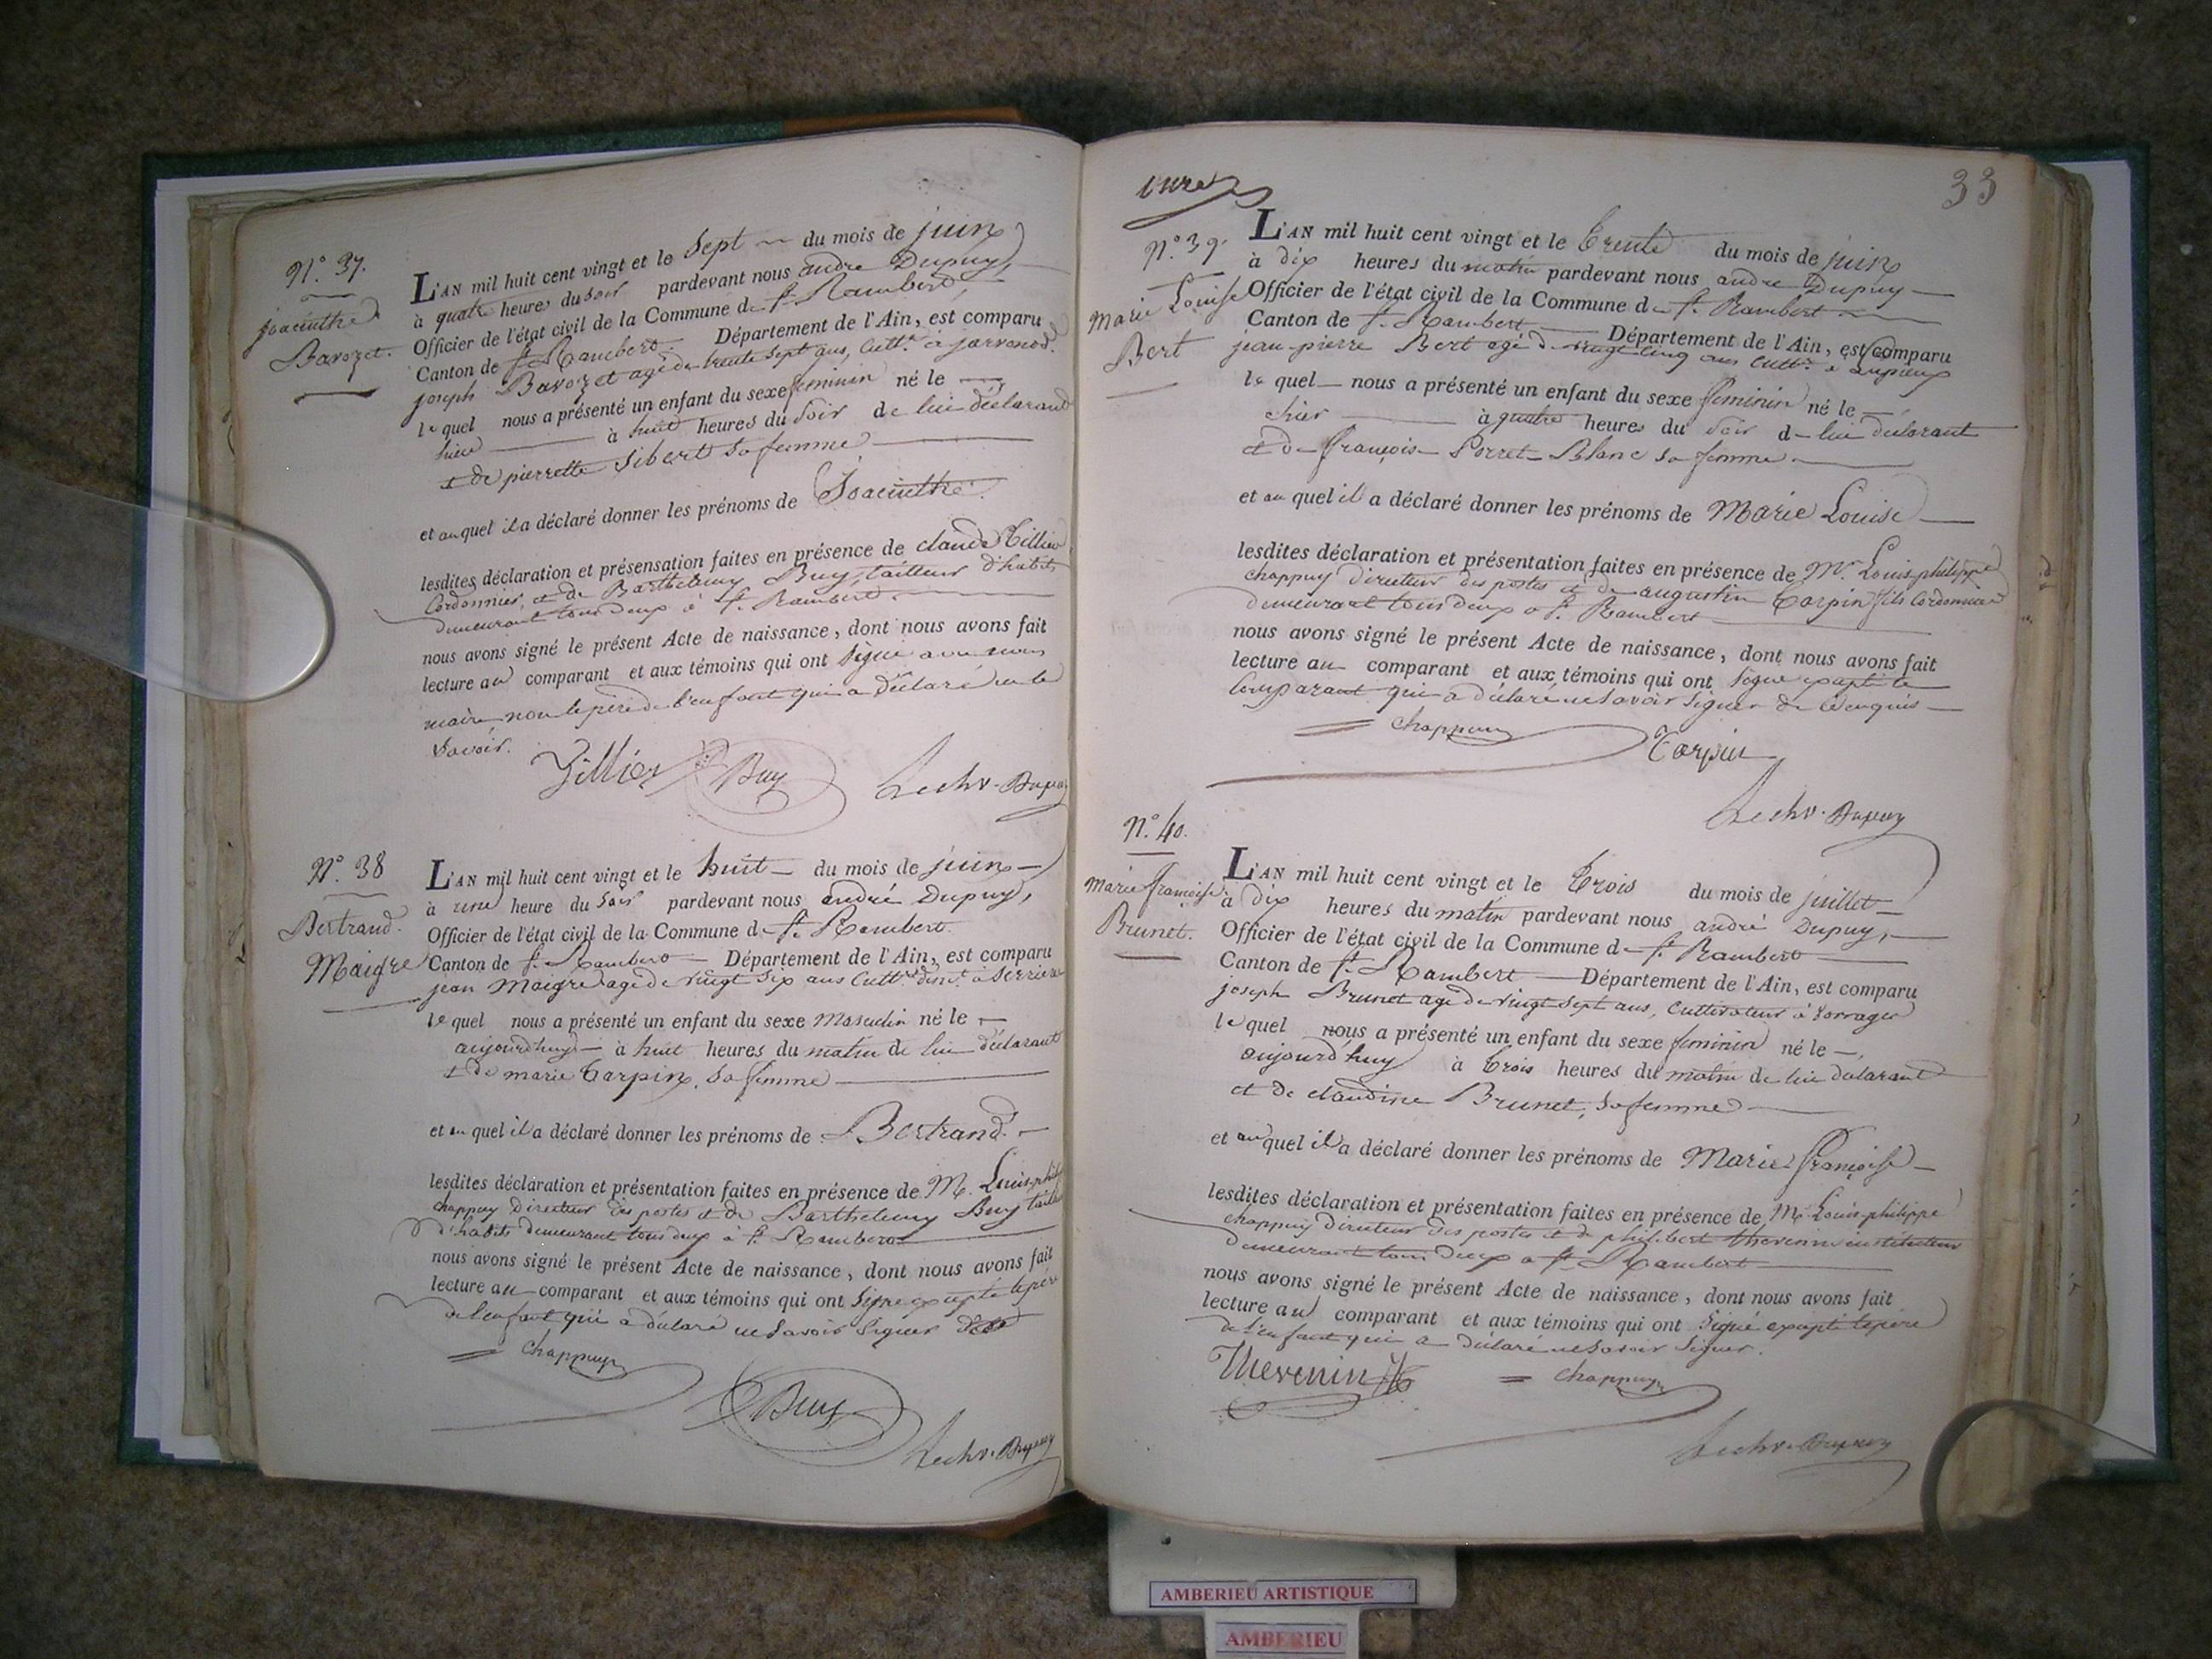 N.° 37.
joacinthe
Bavozet.
L'AN mil huit cent vingt et le Sept du mois de juin
à quatre heures du soir pardevant nous andre Dupuy,
Officier de l'état civil de la Commune de St. Rambert
Canton de St. Rambert. Département de l'Ain, est comparu
joseph Bavozet agé de trente sept ans, Cultr. à jarvonod.
lequel nous a présenté un enfant du sexe feminin né le
hier à huit heures du soir de lui déclarant
& de pierrette Sibert sa femme
et auquel il a déclaré donner les prénoms de Joacinthe.
lesdites déclaration et présensation faites en présence de claude Tillier
Cordonnier, et de Barthelemy Buy, tailleur d'habits
demeurant tous deux à St. Rambert.
nous avons signé le présent Acte de naissance, dont nous avons fait
lecture au comparant et aux témoins qui ont signé avec nous
maire non le père de l'enfant qui a déclaré ne le
savoir.
Tillier Buy Lechv. Dupuy
N.° 38
Bertrand.
Maigre
L'AN mil huit cent vingt et le huit du mois de juin
à une heure du soir pardevant nous andré Dupuy,
Officier de l'état civil de la Commune de St. Rambert.
Canton de St. Rambert Département de l'Ain, est comparu
jean Maigre agé de vingt six ans Cultr. demt. à Serrieres
lequel nous a présenté un enfant du sexe Masculin né le
aujourd'huy à huit heures du matin de lui déclarant
& de marie Carpin, sa femme
et auquel il a déclaré donner les prénoms de Bertrand.
lesdites déclaration et présentation faites en présence de M. Louis-philippe
chappuy directeur des postes et de Barthelemy Buy tailleur
d'habits demeurant tous deux à St. Rambert
nous avons signé le présent Acte de naissance, dont nous avons fait
lecture au comparant et aux témoins qui ont signé excepté le père
de l'enfant qui a déclaré ne savoir signer
Chappuy
Buy
Lechv. Dupuy
33
N.° 39.
Marie Louise
Bert
L'AN mil huit cent vingt et le trente du mois de juin
à dix heures du matin pardevant nous andré Dupuy
Officier de l'état civil de la Commune de St. Rambert
Canton de St. Rambert Département de l'Ain, est comparu
jean-pierre Bert agé de vingt cinq ans Cultr. a
lequel nous a présenté un enfant du sexe feminin né le
hier à quatre heures du soir de lui déclarant
et de françoise Porret-Blanc sa femme
et auquel il a déclaré donner les prénoms de Marie Louise
lesdites déclaration et présentation faites en présence de Mr. Louis philippe
chappuy directeur des postes et de augustin Carpin fils Cordonnier
demeurant tous deux a St. Rambert
nous avons signé le présent Acte de naissance, dont nous avons fait
lecture au comparant et aux témoins qui ont signé excepté le
Comparant qui a déclaré ne savoir signer de ce enquis
Chappuy
Carpin
Lechv. Dupuy
N.° 40.
Marie françoise
Brunet.
L'AN mil huit cent vingt et le trois du mois de juillet
à dix heures du matin pardevant nous andré Dupuy,
Officier de l'état civil de la Commune de St. Rambert
Canton de St. Rambert Département de l'Ain, est comparu
joseph Brunet agé de vingt sept ans, Cultivateur à
lequel nous a présenté un enfant du sexe feminin né le
aujourd'huy à trois heures du matin de lui déclarant
et de claudine Brunet, sa femme
et auquel il a déclaré donner les prénoms de Marie françoise
lesdites déclaration et présentation faites en présence de Mr. Louis philippe
chappuy directeur des postes et de philibert thevenin instituteur
demeurant tous deux a St. Rambert
nous avons signé le présent Acte de naissance, dont nous avons fait
lecture au comparant et aux témoins qui ont signé excepté le père
de l'enfant qui a déclaré ne savoir signer.
Thevenin Chappuy
Lechv. Dupuy
AMBERIEU ARTISTIQUE
AMBERIEU